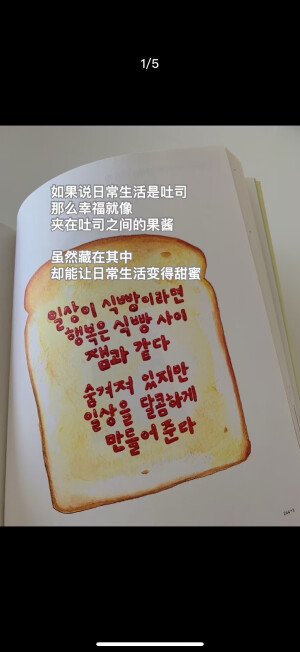 1/5
如果说日常生活是吐司
那么幸福就像
夹在吐司之间的果酱
虽然藏在其中
却能让日常生活变得甜蜜
일상이 식빵이라면
행복은 식빵 사이
잼과 같다
숨겨져 있지만
일상을 달콤하게
만들어 준다